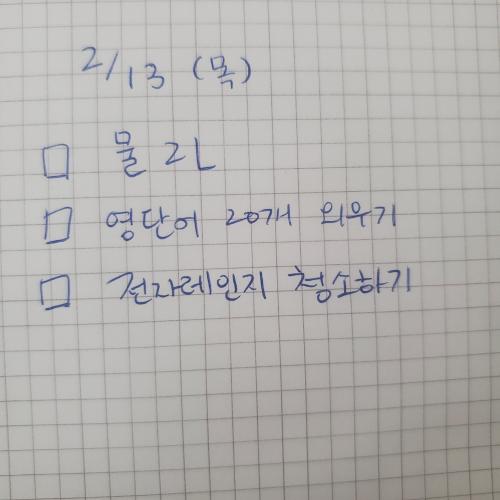 2/13 (목)
□ 물 2L
□ 영단어 20개 외우기
□ 전자레인지 청소하기